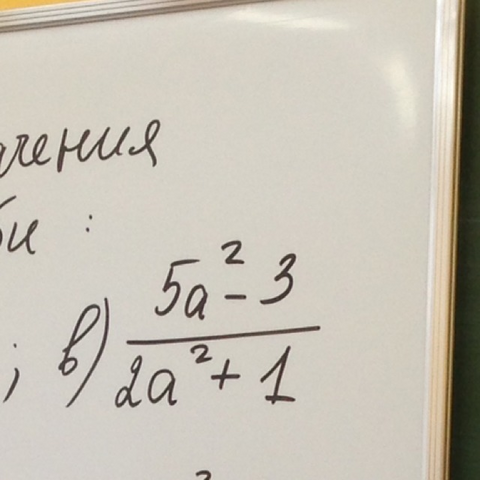 чения
би :
; в) (5a² - 3)/(2a² + 1)
2